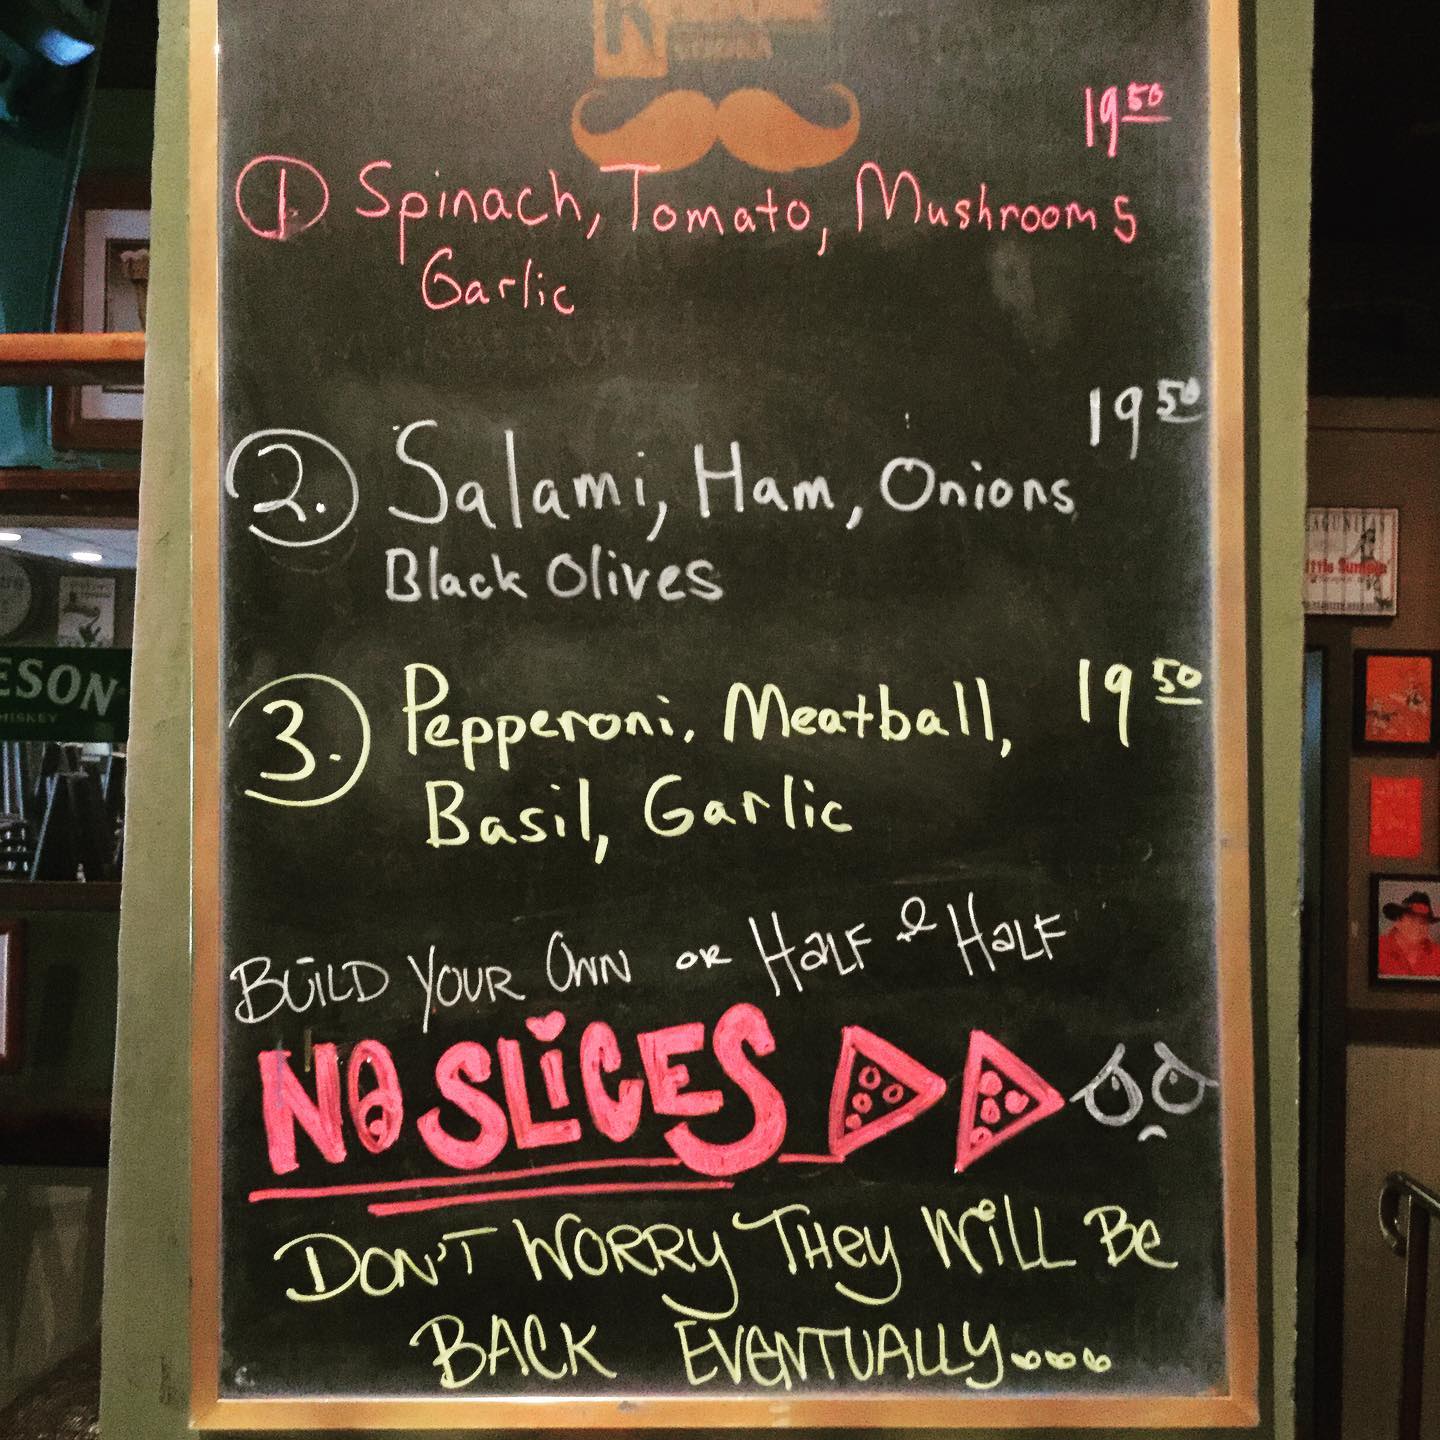 19 50
1 Spinach, Tomato, Mushrooms
Garlic
19 50
2. Salami, Ham, Onions
Black Olives
3. Pepperoni, Meatball, 19 50
Basil, Garlic
BUILD YOUR OWN OR HALF & HALF
NO SLICES
DON'T WORRY THEY WILL BE
BACK EVENTUALLY....
ESON
HISKEY
AGUNITAS